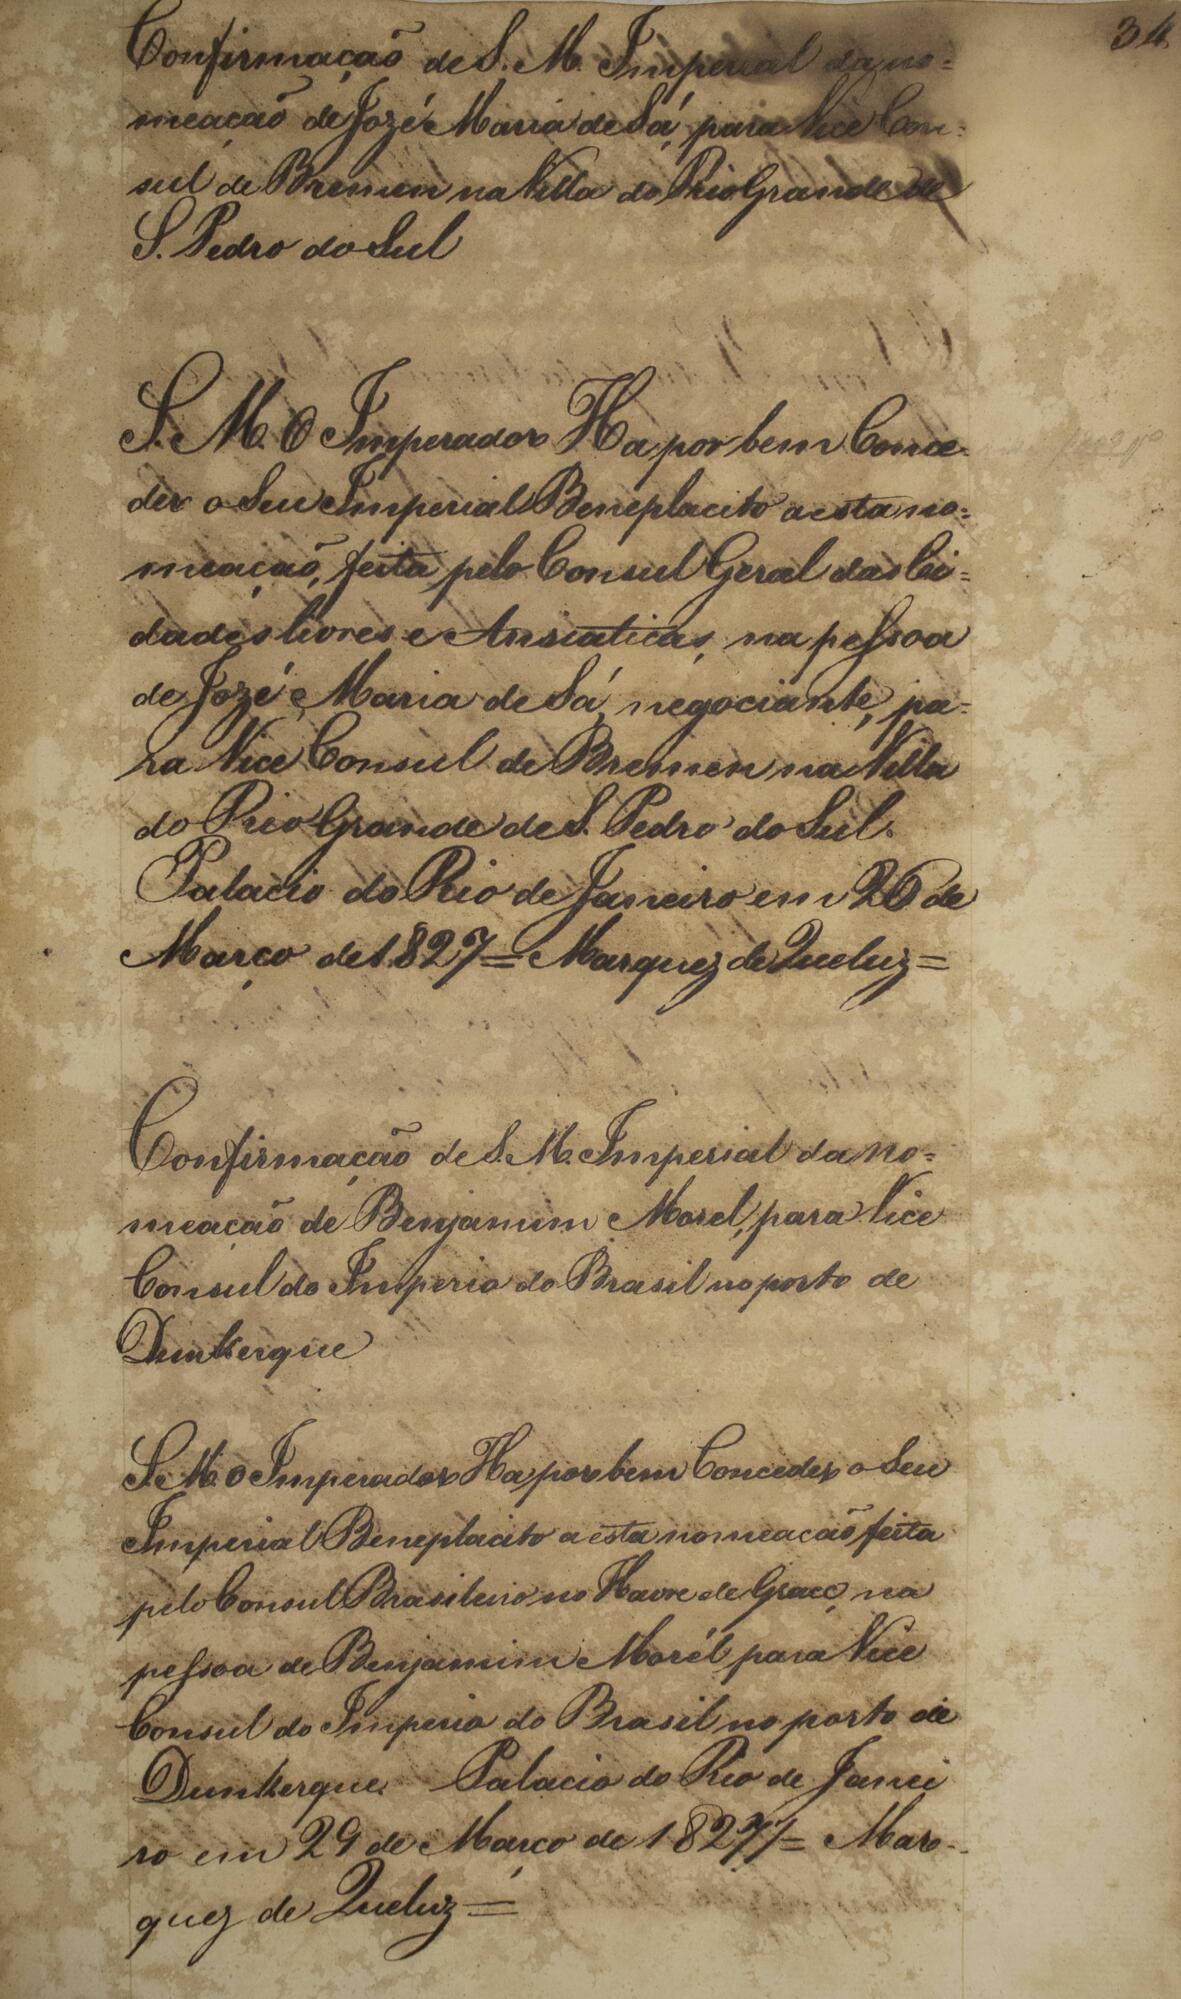 34
Confirmação de S. M. Imperial da no=
meação de Jozé Maria de Sá, para Vice Con=
sul de Bremen na Villa do Rio Grande de
S. Pedro do Sul
S. M. O Imperador Ha por bem Conce=
der o Seu Imperial Beneplacito a esta no=
meação, feita pelo Consul Geral das Ci=
dades livres e Anseaticas, na pessoa
de Jozé Maria de Sá, negociante, pa=
ra Vice Consul de Bremen na Villa
do Rio Grande de S. Pedro do Sul.
Palacio do Rio de Janeiro em 26 de
Março de 1827= Marquez de Queluz=
Confirmação de S. M. Imperial da no=
meação de Benjamim Morel, para Vice
Consul do Imperio do Brasil no porto de
Dunkerque
S. M. O Imperador Ha por bem Conceder o Seu
Imperial Beneplacito a esta nomeacão feita
pelo Consul Brasileiro no Havre de Grace, na
pessoa de Benjamim Morél para Vice
Consul do Imperio do Brasil no porto de
Dunkerque. Palacio do Rio de Janei
ro em 29 de Março de 1827= Mar-
quez de Queluz=